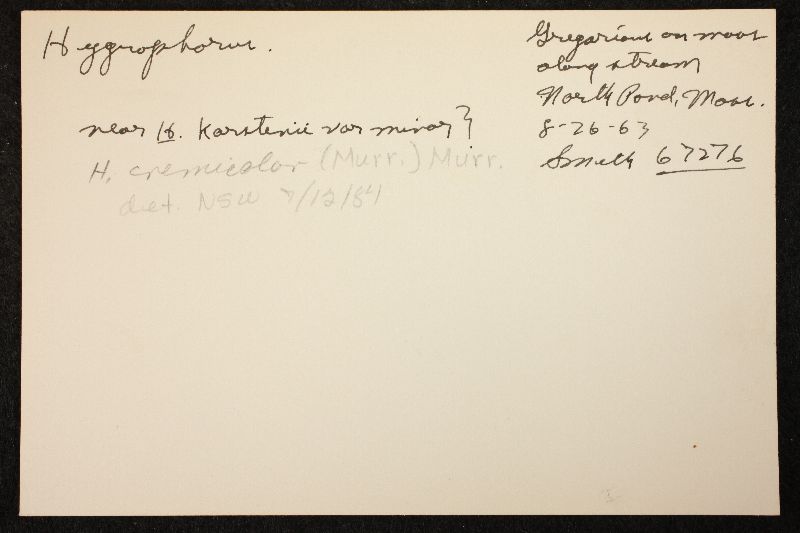 Hygrophorus.
near H. Karstenii var minor?
H. cremicolor (Murr.) Murr.
det. NSW 7/12/84
Gregarious on moss
along stream
North Pond, Mass.
8-26-63
Smith 67276